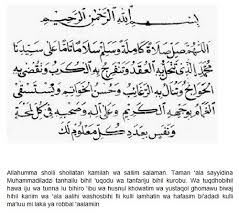 بِسْمِ اللهِ الرَّحْمٰنِ الرَّحِيْمِ
اللهم صل صلاة كاملة وسلم سلاما تاما على سيدنا
محمد الذي تنحل به العقد وتنفرج به الكرب وتقضى به
الحوائج وتنال به الرغائب وحسن الخواتم ويستسقى
الغمام بوجهه الكريم وعلى آله وصحبه في كل لمحة
ونفس بعدد كل معلوم لك
Allahumma sholli shollatan kamilah wa sallim salaman. Taman 'ala sayyidina
Muhammadiladzi tanhallu bihil 'uqodu wa tanfariju bihil kurobu. Wa tuqdhobihil
hawa iju wa tunna lu bihiro 'ibu wa husnul khowatim wa yustaqol ghomawu biwaj
hihil karim wa 'ala aalihi washosbihi fii kulli lamhatin wa hafasim bi'adadi kulli
ma'luu mi laka ya robbal 'aalamiin